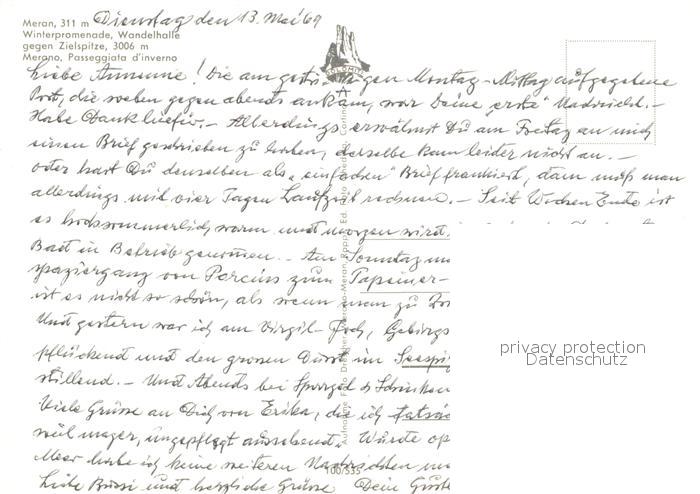 Meran, 311 m
Winterpromenade, Wandelhalle
gegen Zielspitze, 3006 m
Merano, Passeggiata d'inverno
Dienstag den 13. Mai 69
DOLOMITI
Liebe Annunie! Die am gestrigen Montag-Mittag aufgegebene
Post, die soeben gegen abends ankam, war Deine "erste" Nachricht. -
Habe Dank hiefür. - Allerdings erwähnst Du am Freitag an mich
einen Brief geschrieben zu haben, derselbe kam leider nicht an. -
oder hast Du denselben als "einfachen" Brief frankiert, dann muß man
allerdings mit vier Tagen Laufzeit rechnen. - Seit Wochen Ende ist
es hochsommerlich warm und morgen wird
Bad in Betrieb genommen. - Am Sonntag
spaziergang von Parcins zum Tapeiner-
ist es nicht so schön, als wenn man zu
Und gestern war ich am Virgil-Joch, Gebirgs
pflückend und den grossen Durst im
stillend. - Und Abends bei Spargel & Schinken
Viele Grüsse an Dich von Erika, die ich
weil mager, ungepflegt aussehend. Wurde
habe ich keine weiteren Nachrichten
Liebe Bussi und herzliche Grüsse Dein
100/535
privacy protection
Datenschutz